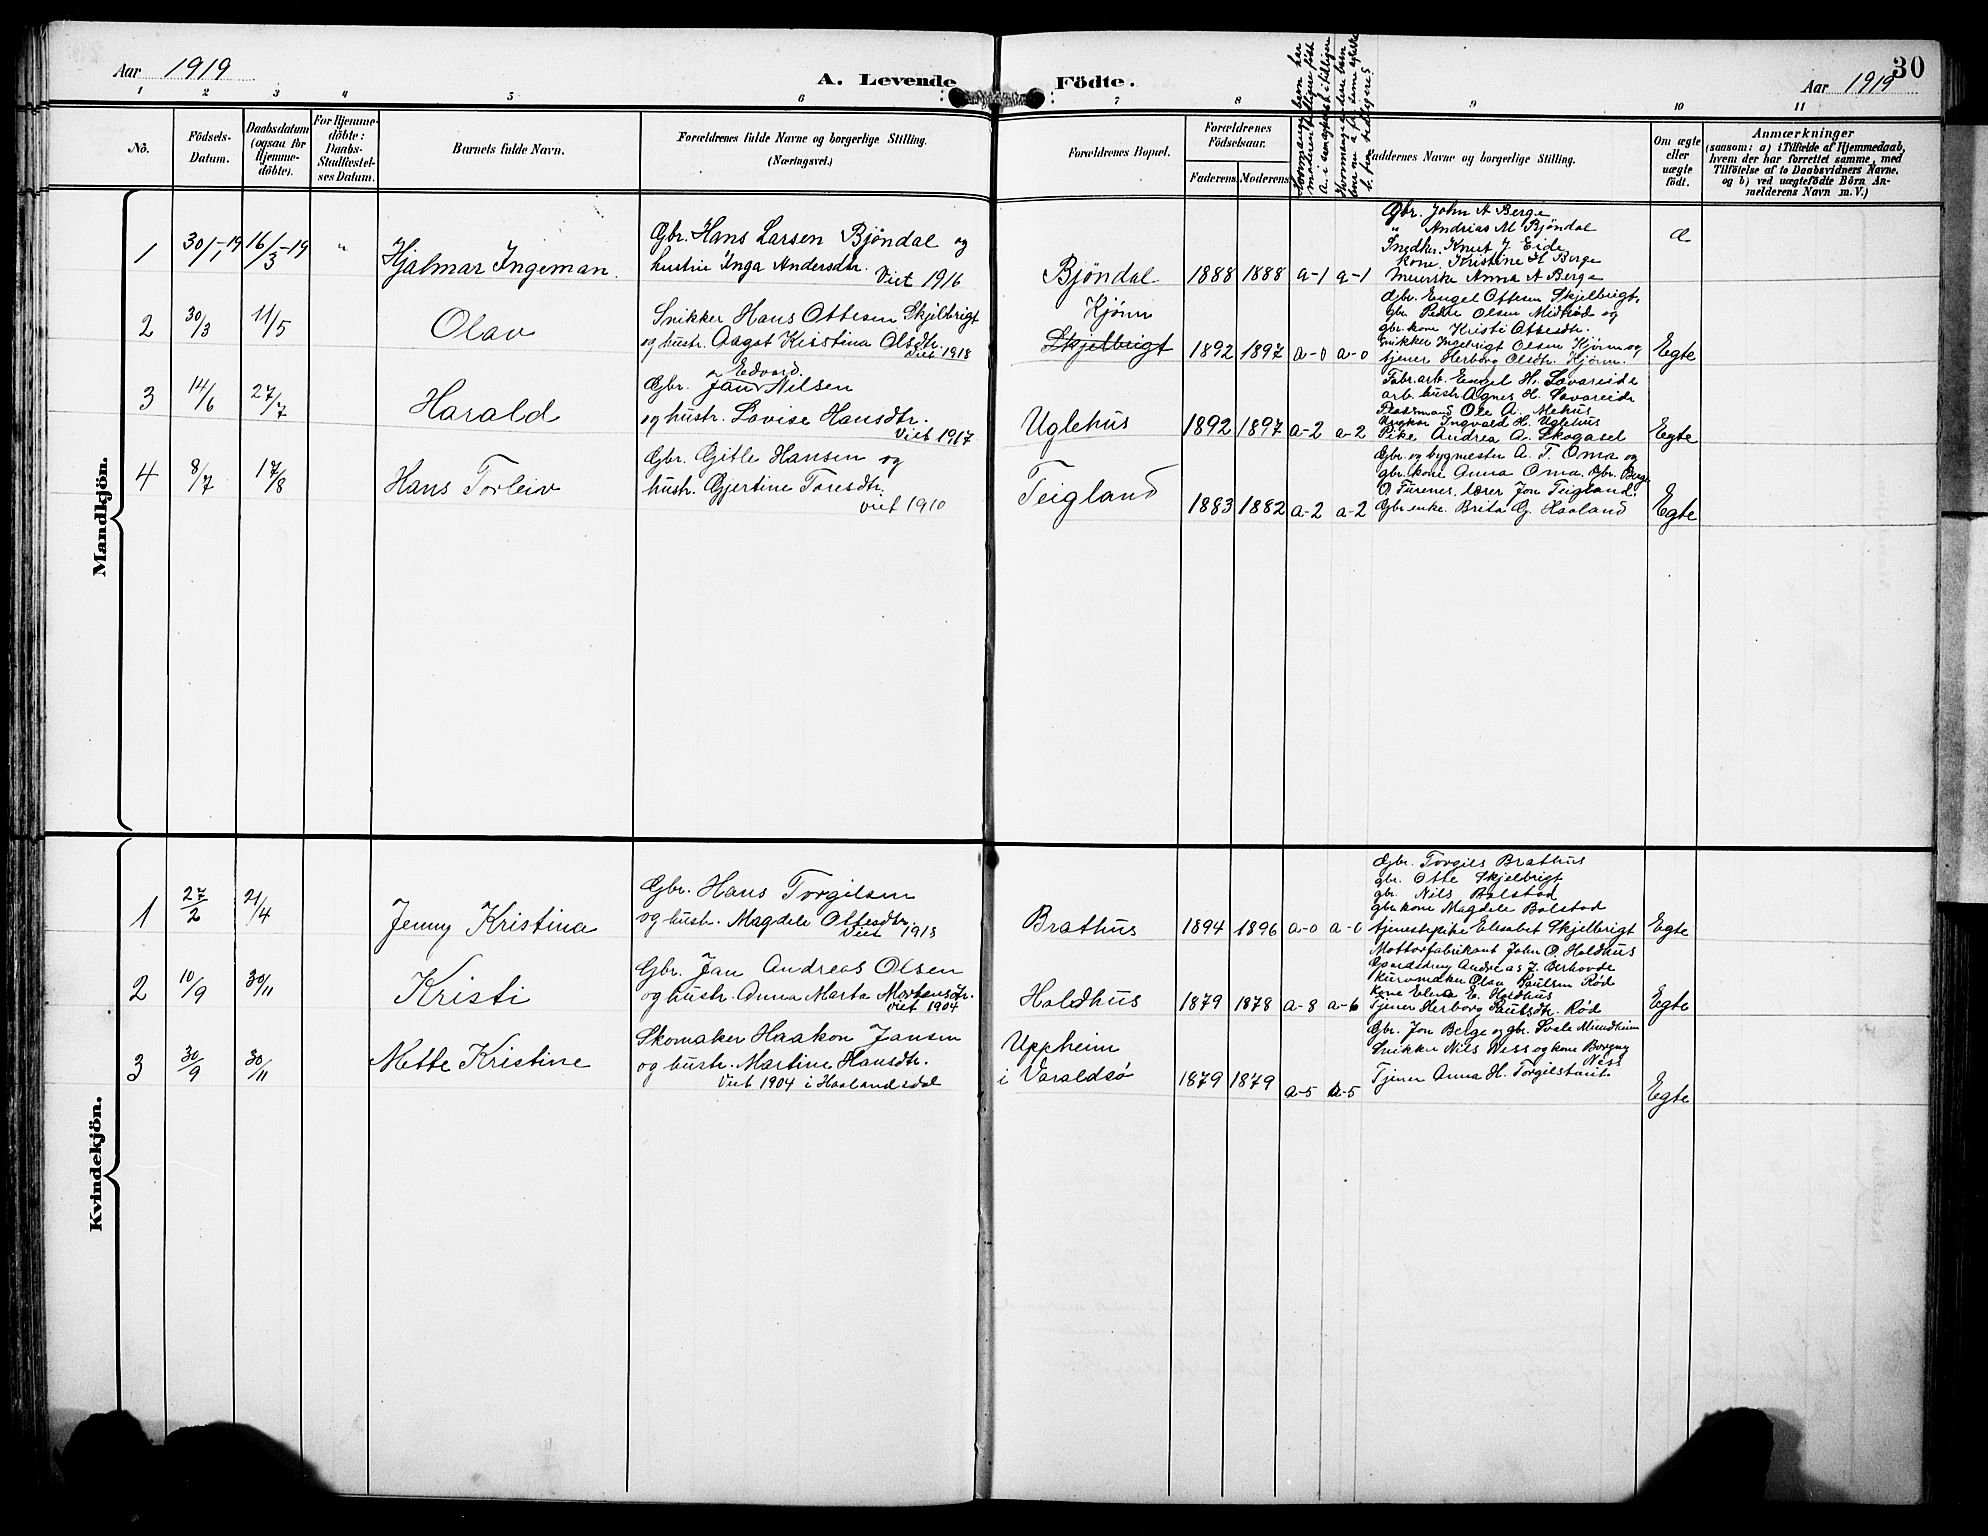 Aar 1919
A. Levende Födte.
Aar 1919
30
1 2 3 4 5 6 7 8 9 10 11
No.
Födsels-Datum.
Daabsdatum (ogsaa for Hjemme-döbte).
For Hjemme-döbte: Daabs-Stadfæstel-ses Datum.
Barnets fulde Navn.
Forældrenes fulde Navne og borgerlige Stilling.
(Næringsvei.)
Forældrenes Bopæl.
Forældrenes Födselsaar.
Faderens. Moderens.
Faddernes Navne og borgerlige Stilling.
Om ægte eller uægte födt.
Anmærkninger
(saasom: a) i Tilfælde af Hjemmedaab, hvem der har forrettet samme, med Tilföielse af to Daabsvidners Navne, og b) ved uægtefödte Börn An-melderens Navn m. V.)
Mandkjön.
1 30/1-19 16/3-19 " Hjalmar Ingeman.
Gbr. Hans Larsen Bjöndal og
hustru Inga Andersdtr.
Viet 1916
Bjöndal 1888 1888 a-1 a-1
Gbr. John A Berge
" Andrias M Bjöndal
Snedker. Knut J. Eide
kone. Kristine H Berge
Anna A Berge
æ
2 30/3 11/5 Olav
Snikker Hans Ottesen Skjelbrigt
og hustr. Aagot Kristina Olsdtr.
Viet 1918
Hjönn
Skjelbrigt 1892 1897 a-0 a-0
Gbr. Engel Ottesen Skjelbrigt,
gbr. Peder Olsen og
gbr. kone Kristi Ottesdtr.
Snikker Ingebrigt Olsen Hjönn og
tjener Herborg Olsdtr. Hjönn.
Egte
3 14/6 27/7 Harald
Edvard
Gbr. Jan Nilsen
og hustr. Lovise Hansdtr.
Viet 1917
Uglehus 1892 1897 a-2 a-2
Fabr. arb. Engel H. Lavareide
arb. hustr Agnes H. Lavareide
Ole A. Mehus
Ungkar Ingvald H. Uglehus
Pike Andrea A. Skogasel
Egte
4 8/7 17/8 Hans Torleiv
Gbr. Gitle Hansen og
hustr. Gjertine Toresdtr.
viet 1910
Teigland 1883 1882 a-2 a-2
Gbr. og bygmester A. T. Oma og
gbr. kone Anna Oma, Gbr. Berge
O Turenes, lærer Jon Teigland.
Gbr. enke. Brita G. Haaland
Egte
Kvindekjön.
1 27/2 21/4 Jenny Kristina
Gbr. Hans Torgilsen
og hustr. Magdele Ottesdtr.
Viet 1918
Brathus 1894 1896 a-0 a-0
Gbr. Torgils Brathus
gbr. Otte Skjelbrigt
gbr. Nils Bolstad
gbr kone Magdele Bolstad
tjenestpike Elisabet Skjelbrigt
Egte
2 10/9 30/11 Kristi
Gbr. Jan Andreas Olsen
og hustr. Anna Marta Mortensdtr.
viet 1904
Holdhus 1879 1878 a-8 a-6
Mottorfabrikant John O. Holdhus
Gaardsdreng Andreas J. Berhovde
Kurvmaker Olav Paulsen Röd
kone Elena E. Holdhus
Tjener Herborg Paulsdtr. Röd
Egte
3 30/9 30/11 Mette Kristine
Skomaker Haakon Jansen
og hustr. Martine Hansdtr.
Viet 1904 i Haalandsdal
Uppheim
i Varaldsö 1879 1879 a-5 a-5
Gbr. Jon Berge og gbr. Svale Mundheim
Snikker Nils Ness og kone Borgny
Ness
Tjener Anna H. Torgilstveit.
Egte